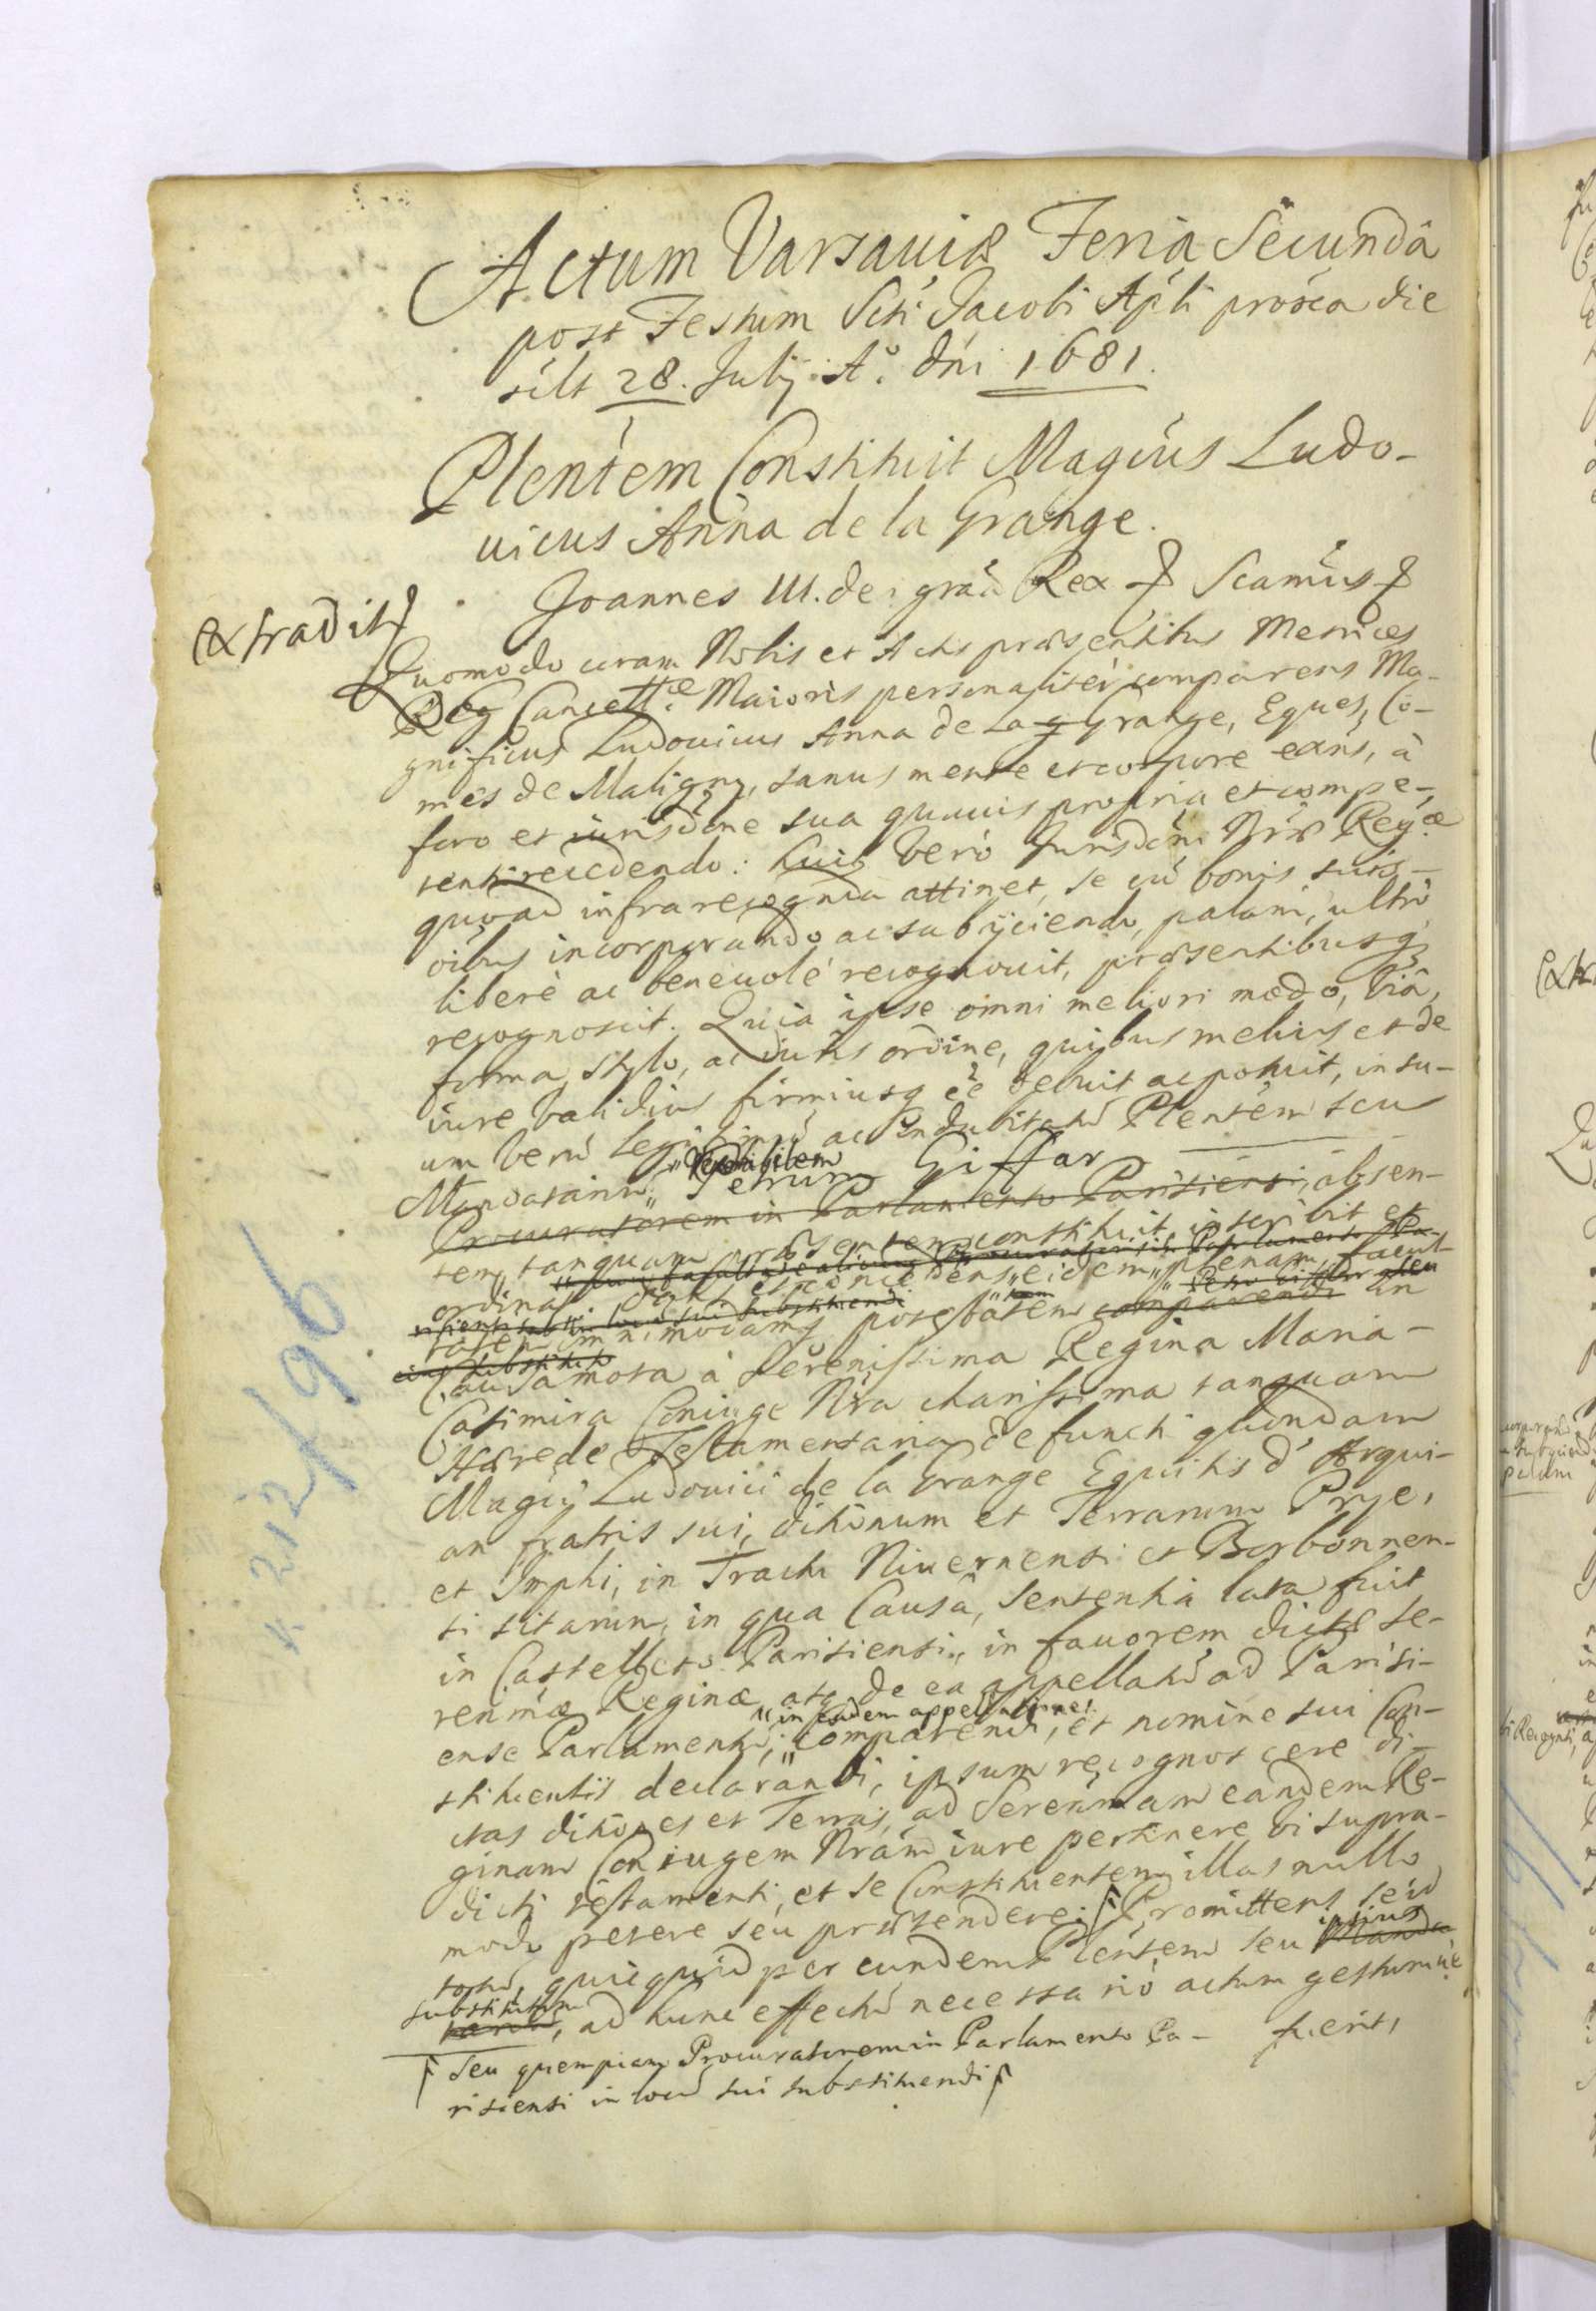 Actum Varsaviæ Feria Secundâ
post Festum Scti Jacobi Apli proxa die
sclt 28. Julij. Aº. dni 1681.
Plentem Constituit Magcus Ludo-
uicus Anna de la Grange.
Joannes III. dei gra Rex Scamus
Extradit
Quomodo coram Nobis et Actis præsentibus Metrices
Reg Cancellæ Maioris personaliter comparens Ma-
gnificus Ludouicus Anna de La Grange, Eques, Co-
mes de Maligny, sanus mente et corpore exns, à
foro et iurisdone sua quauis propria et compe-
tenti recedendo: huic vero Jurisdoni Nræ Regæ
quoad infra recognda attinet, se cu bonis suis
oibus incorporando ac subijciendo, palam, ultro
liberè ac beneuolé recognouit, præsentibusq
recognoscit. Quia ipse omni meliori modo, viâ,
forma, stylo, ac iuris ordine, quibus melius et de
iure validius firmiusq ee debuit ac potuit, in su-
um verú legitimú ac indubitatú Plentem seu
Mandatariú Petrum Giffar
Procuratorem in Parlamento Parisiensi, absen-
tem tanquam præsentem constituit inscribit et
ordinat. Dans et concedens eidem plenam facul-
tatem omnimodamq potestatem comparendi in
eius substituto
Causa mota à Serenissima Regina Maria
Casimira Coniuge Nra charissima tanquam
Hærede Testamentaria defuncti quondam
Magci Ludouici de la Grange Equitis d'Arqui-
an fratris sui, ditionum et Terrarum Prye,
et Imphi, in Tractu Niuernensi et Borbonnen-
si sitarum, in qua Causâ, Sententia lata fuit
in Castelleto Parisiensi, in fauorem dictæ Se-
renmæ Reginæ atq de ea appellatú ad Parisi-
in eadem appellatione
ense Parlamentú; comparendi, et nomine sui Con-
stituentis declarandi, ipsum recognoscere di-
ctas ditiones et Terras, ad Serenmam eandem Re-
ginam Coniugem Nram iure pertinere vi supra-
dicti testamenti, et se Constituentem illas nullo
modo petere seu prætendere; Promittens se id
ipsius
totú, quicquid per eundem Plentem seu Manda
substitutum
tariú, ad hunc effectú necessario actum gestumue
fuerit,
Seu quempiam Procuratorem in Parlamento Pa-
risiensi in locú sui substituendi